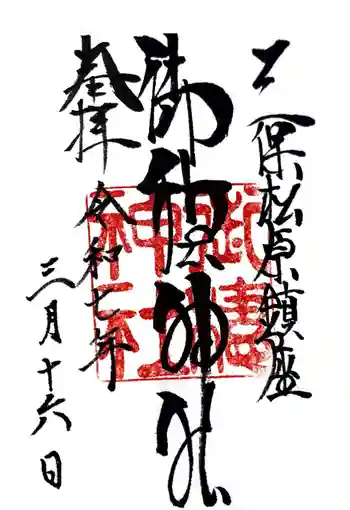 三保松原鎮座
御穂神社
奉拝
令和七年
三月十六日